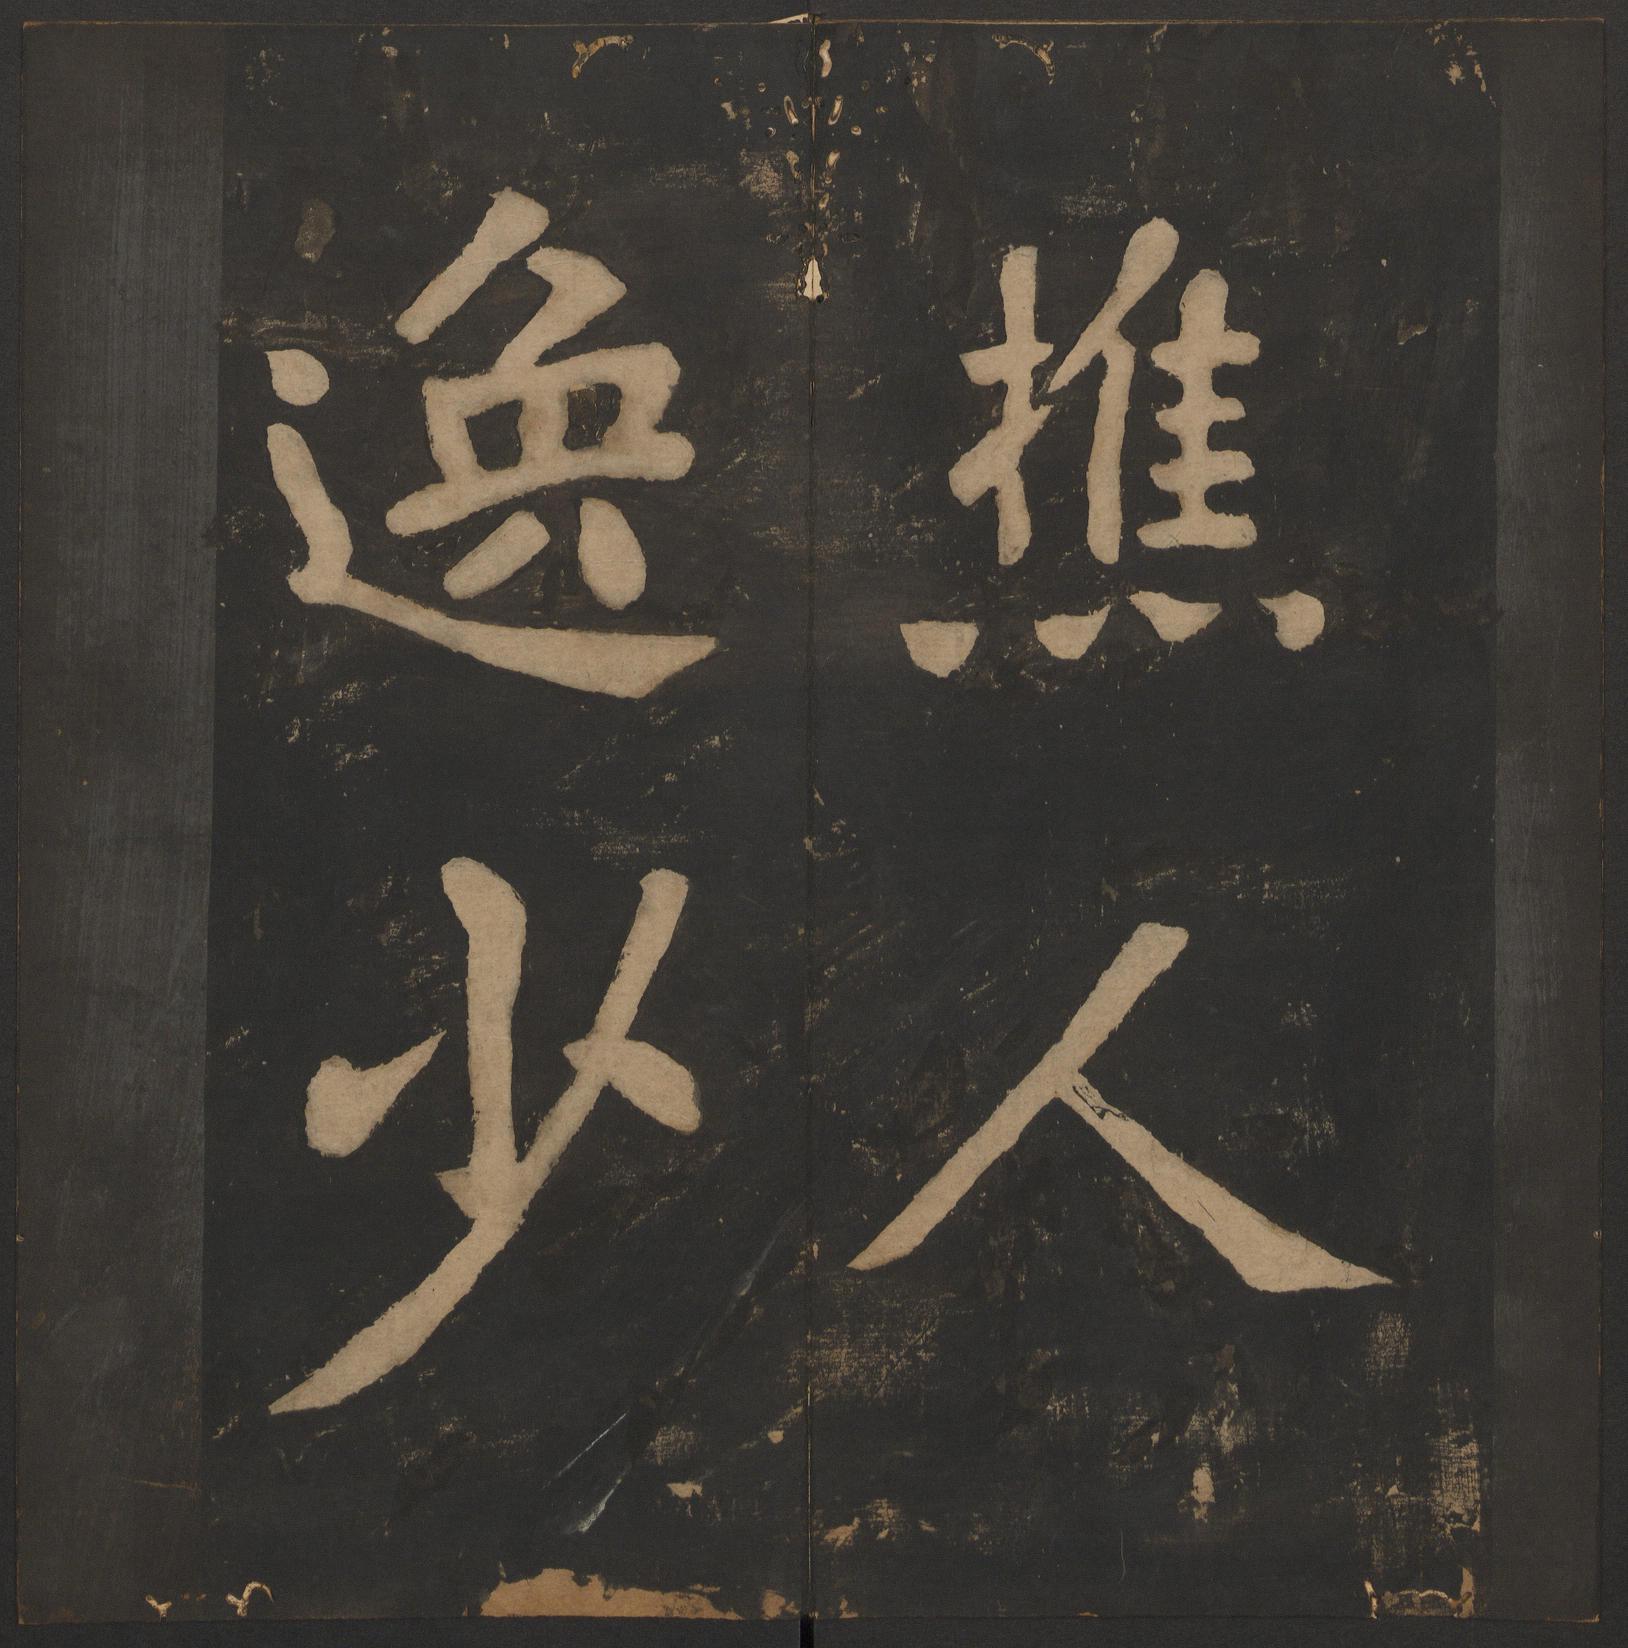 樵人
逸少